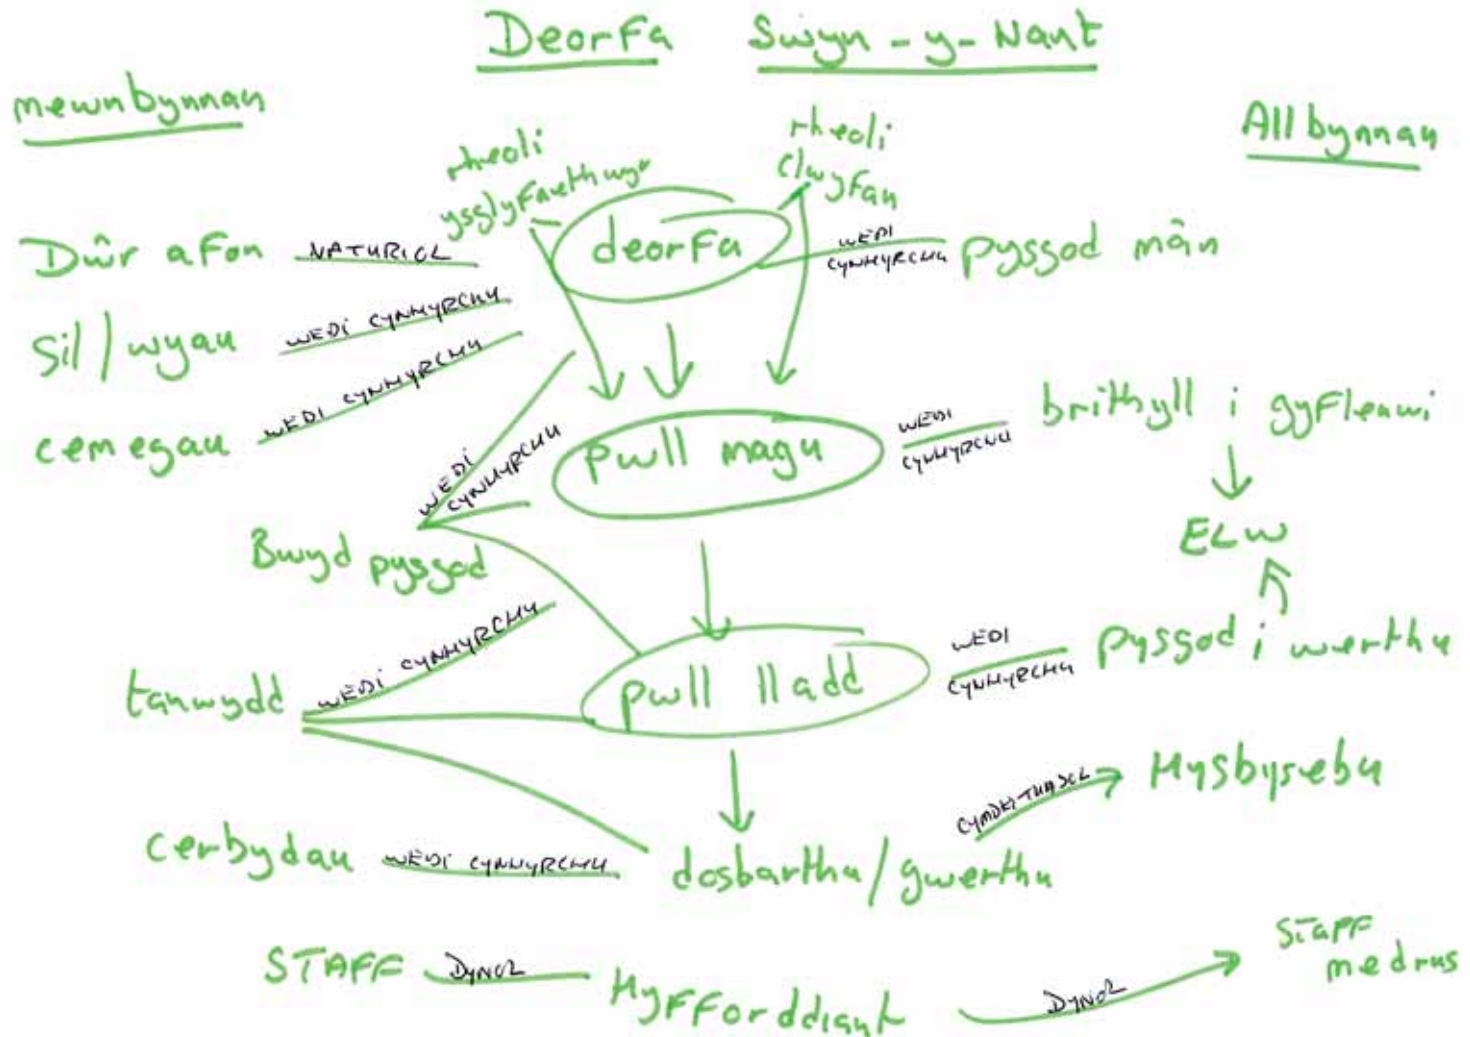 Deorfa Swyn-y-Nant
mewnbynnau
Allbynnau
rheoli
ysglyfaethwyr
rheoli
clwyfau
Dŵr afon NATURIOL
deorfa
WEDI
CYNHYRCHU
pysgod mân
Sil/wyau WEDI CYNHYRCHU
cemegau WEDI CYNHYRCHU
pwll magu
WEDI
CYNHYRCHU
brithyll i gyflenwi
Bwyd pysgod
WEDI
CYNHYRCHU
ELW
tanwydd WEDI CYNHYRCHU
pwll lladd
WEDI
CYNHYRCHU
pysgod i werthu
CYMDEITHASOL Hysbysebu
cerbydau WEDI CYNHYRCHU dosbarthu/gwerthu
STAFF DYNOL Hyfforddiant DYNOL
staff
medrus